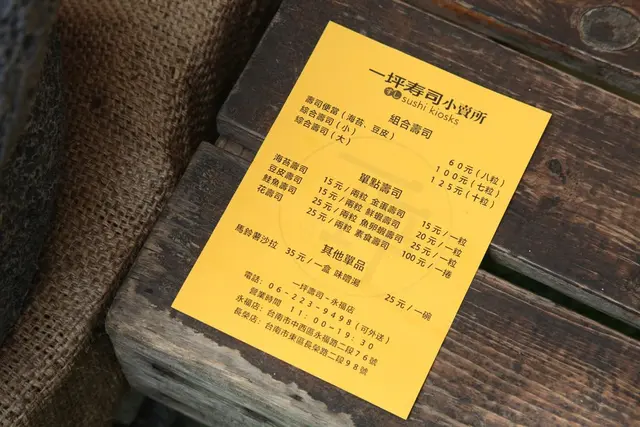 一坪寿司小賣所
sushi kiosks
組合壽司
壽司便當(海苔、豆皮) 60元(八粒)
綜合壽司(小) 100元(七粒)
綜合壽司(大) 125元(十粒)
單點壽司
海苔壽司 15元/兩粒 金蛋壽司 15元/一粒
豆皮壽司 15元/兩粒 鮮蝦壽司 20元/一粒
鮭魚壽司 25元/兩粒 魚卵蝦壽司 25元/一粒
花壽司 25元/兩粒 素食壽司 100元/一捲
其他單品
馬鈴薯沙拉 35元/一盒 味噌湯 25元/一碗
一坪壽司·永福店
電話:06-223-9498(可外送)
營業時間 11:00-19:30
永福店:台南市中西區永福路二段76號
長榮店:台南市東區長榮路二段98號